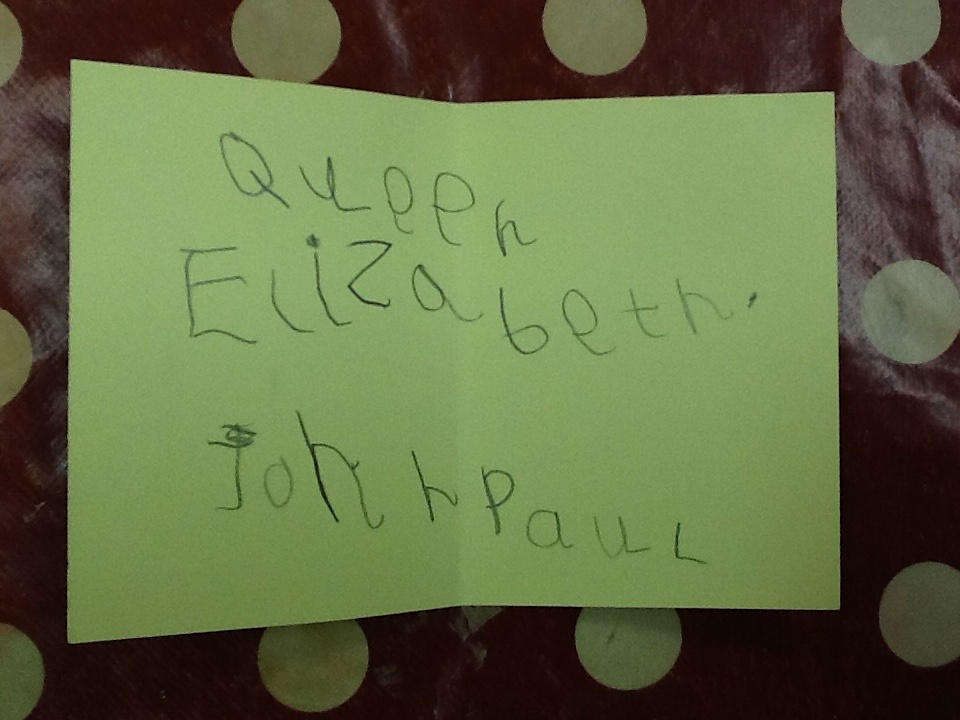 Queen
Elizabeth.
John Paul